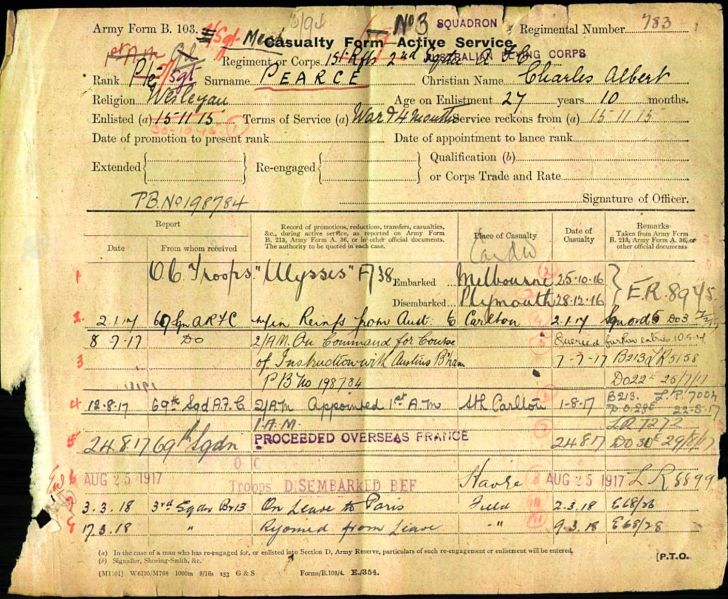 Army Form B. 103. Sgt Mech No 3 SQUADRON Regimental Number 783
Casualty Form Active Service.
AUSTRALIAN FLYING CORPS
Regiment or Corps 2nd Sqdn A F C
Rank Pte Sgt Surname PEARCE Christian Name Charles Albert
Religion Wesleyan Age on Enlistment 27 years 10 months.
Enlisted (a) 15-11-15 Terms of Service (a) War & 4 months Service reckons from (a) 15-11-15
30-10-15
Date of promotion to present rank Date of appointment to lance rank
Extended Re-engaged Qualification (b)
or Corps Trade and Rate
P.B. No 198784 Signature of Officer.
Report
Date From whom received
Record of promotions, reductions, transfers, casualties, &c., during active service, as reported on Army Form B. 213, Army Form A. 36, or in other official documents. The authority to be quoted in each case.
Place of Casualty
Date of Casualty
Remarks
Taken from Army Form B. 213, Army Form A. 36, or other official documents
1 O.C. Troops "Ulysses" A/38 Embarked Melbourne 25-10-16
Disembarked Plymouth 28-12-16 E.R. 8945
2 2.1.17 69 Sqn A.R.F.C Reinfs from Aust. Carlton 2.1.17
8 7.17 Do 2/A.M. On Command for Course Queried further entries 10.9.17
3 of Instruction with Austins B'ham 7-7-17 B213
P B No 198784 Do 22 25/7/17
4 12-8-17 69th Sqd A.F.C 2/AM Appointed 1st A.M. Sth Carlton 1-8-17 B213. L.R. 7004
22-8-17
1.A.M. L.R. 7272
5 24.8.17 69th Sqdn PROCEEDED OVERSEAS FRANCE 24.8.17 DO 30 29/8/17
6 AUG 25 1917 O C Troops DISEMBARKED BEF Havre AUG 25 1917 L R 8899
3.3.18 3rd Sqdn B213 On Leave to Paris Field 2.3.18 E68/28
17.3.18 Rejoined from Leave " 9.3.18 E68/28
(a) In the case of a man who has re-engaged for, or enlisted into Section D, Army Reserve, particulars of such re-engagement or enlistment will be entered.
(b) Signaller, Shoeing-Smith, &c.
[P.T.O.
W6130/M768 1000m 9/16s 153 G & S Forms/B.103/4. E./354.